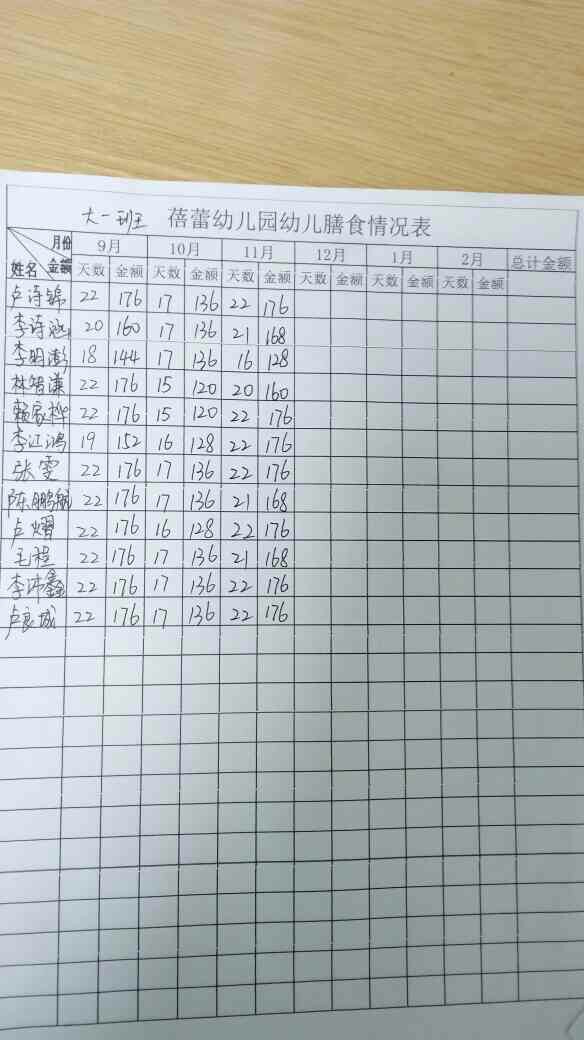 大一班 蓓蕾幼儿园幼儿膳食情况表
月份 9月 10月 11月 12月 1月 2月 总计金额
姓名 金额 天数 金额 天数 金额 天数 金额 天数 金额 天数 金额 天数 金额
卢诗锦 22 176 17 136 22 176
李诗涵 20 160 17 136 21 168
李明澎 18 144 17 136 16 128
林智谦 22 176 15 120 20 160
赖家桦 22 176 15 120 22 176
李江鸿 19 152 16 128 22 176
张雯 22 176 17 136 22 176
陈鹏航 22 176 17 136 21 168
卢熠 22 176 16 128 22 176
毛程 22 176 17 136 21 168
李沛鑫 22 176 17 136 22 176
卢良城 22 176 17 136 22 176